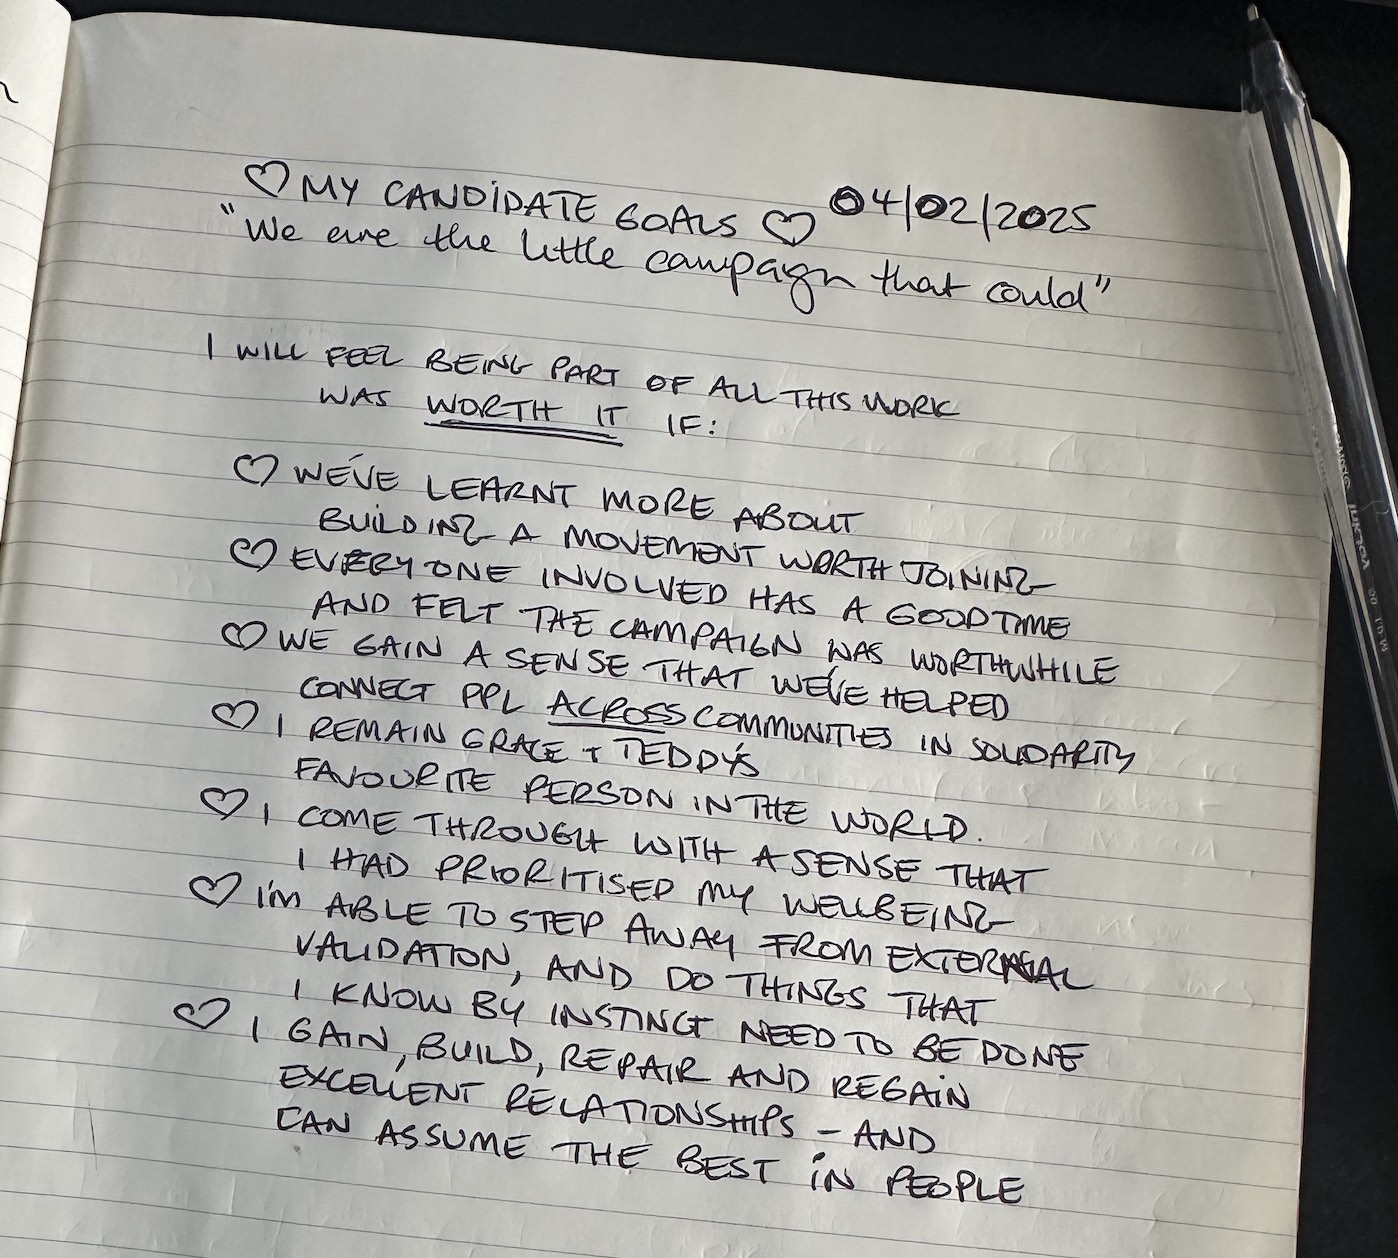 ♡ MY CANDIDATE GOALS ♡ 04/02/2025
"We are the little campaign that could"
I WILL FEEL BEING PART OF ALL THIS WORK
WAS WORTH IT IF:
♡ WE'VE LEARNT MORE ABOUT
BUILDING A MOVEMENT WORTH JOINING
♡ EVERYONE INVOLVED HAS A GOOD TIME
AND FELT THE CAMPAIGN WAS WORTHWHILE
♡ WE GAIN A SENSE THAT WE'VE HELPED
CONNECT PPL ACROSS COMMUNITIES IN SOLIDARITY
♡ I REMAIN GRACE + TEDDY'S
FAVOURITE PERSON IN THE WORLD.
♡ I COME THROUGH WITH A SENSE THAT
I HAD PRIORITISED MY WELLBEING
♡ I'M ABLE TO STEP AWAY FROM EXTERNAL
VALIDATION, AND DO THINGS THAT
I KNOW BY INSTINCT NEED TO BE DONE
♡ I GAIN, BUILD, REPAIR AND REGAIN
EXCELLENT RELATIONSHIPS - AND
CAN ASSUME THE BEST IN PEOPLE